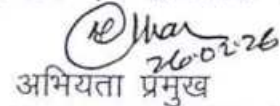 26.02.26
अभियता प्रमुख